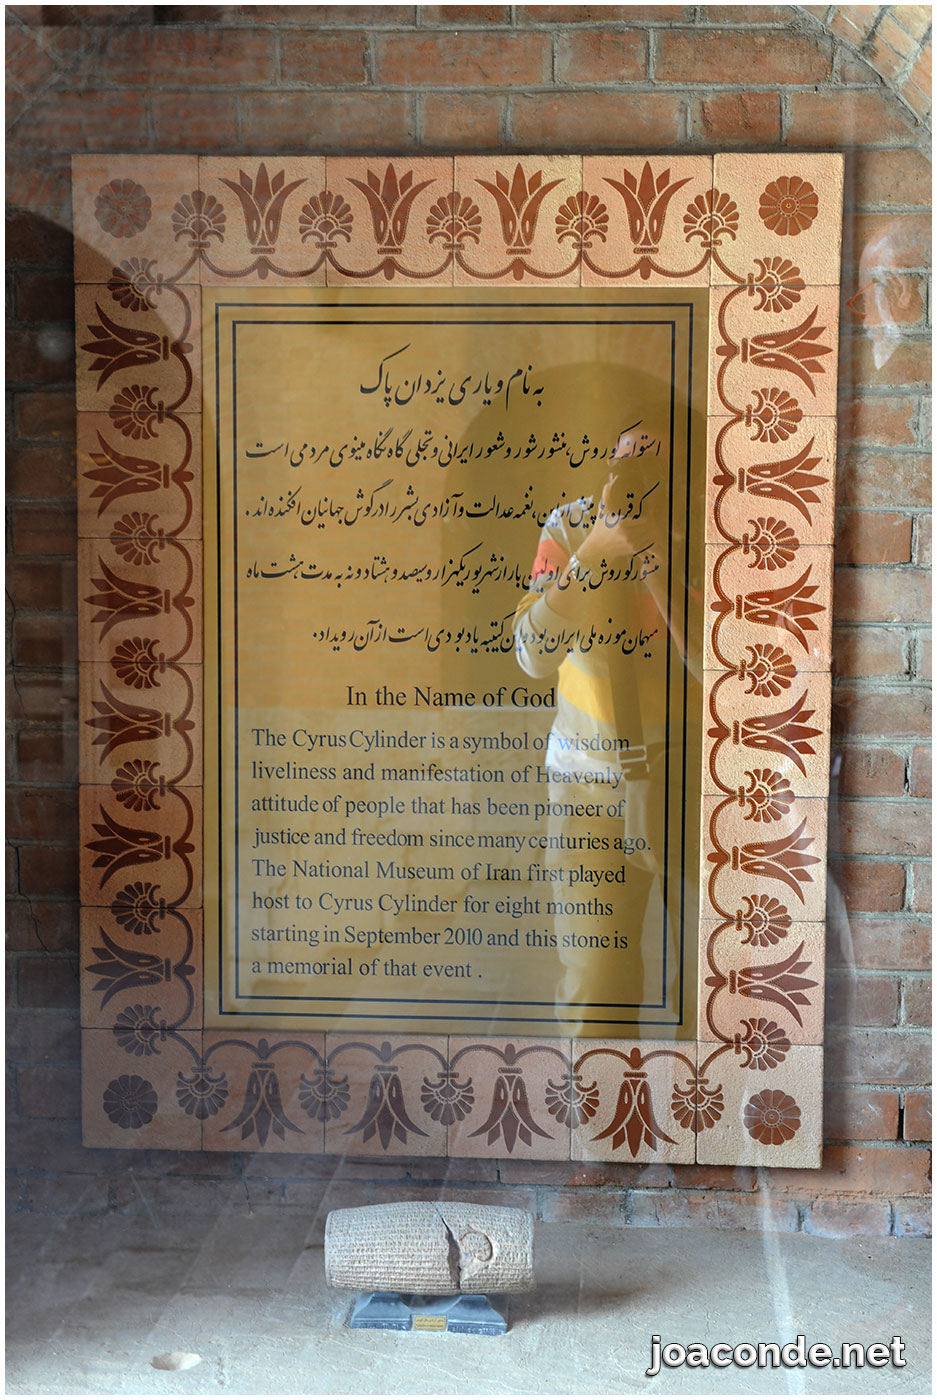 به نام و یاری یزدان پاک
استوانه کوروش، منشور شور و شعور ایرانی و تجلی گاه نگاه مینوی مردمی است
که قرن ها پیش از این، نغمه عدالت و آزادی بشر را در گوش جهانیان افکنده اند .
منشور کوروش برای اولین بار از شهریور یکهزار و سیصد و هشتاد و نه به مدت هشت ماه
میهمان موزه ملی ایران بود و این کتیبه یادبودی است از آن رویداد.
In the Name of God
The Cyrus Cylinder is a symbol of wisdom
liveliness and manifestation of Heavenly
attitude of people that has been pioneer of
justice and freedom since many centuries ago.
The National Museum of Iran first played
host to Cyrus Cylinder for eight months
starting in September 2010 and this stone is
a memorial of that event .
joaconde.net